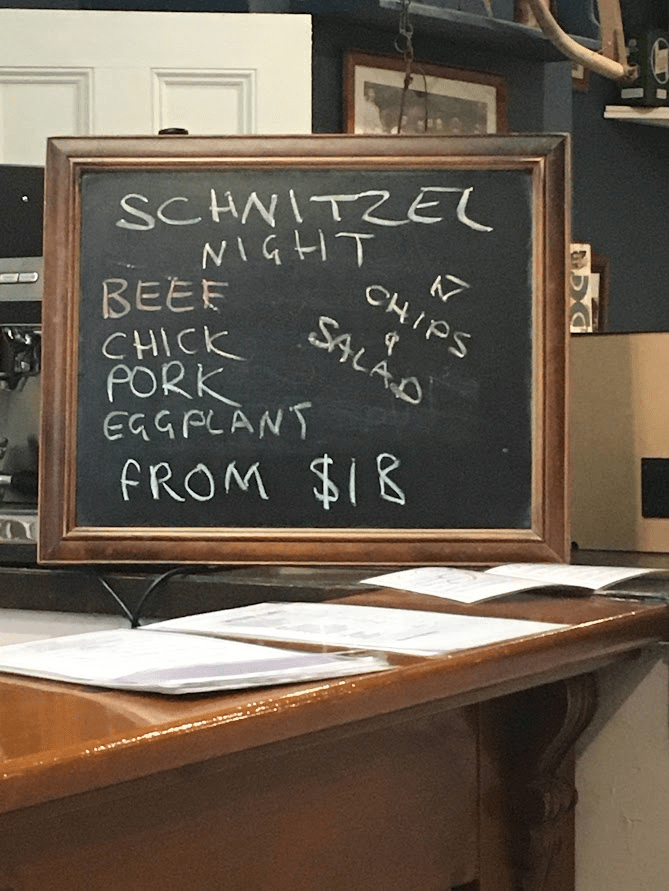 SCHNITZEL
NIGHT
BEEF
CHICK
PORK
EGGPLANT
N
CHIPS
&
SALAD
FROM $18